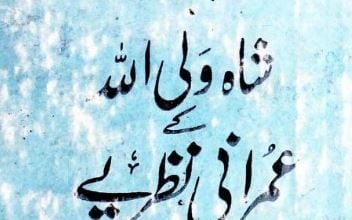 شاہ وَلی اللہ
کے
عمُرانی نظریے